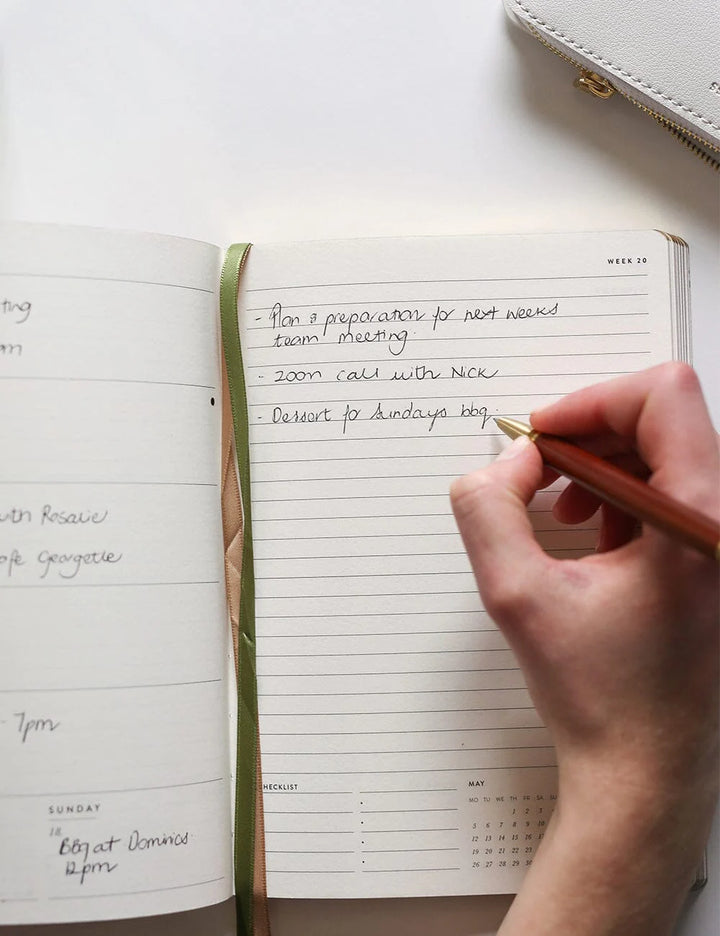 ting
m
with Rosalie
afe Georgette
- 7pm
SUNDAY
18
BBq at Dominics
12pm
WEEK 20
- Plan & preparation for next weeks
team meeting.
- zoom call with Nick
- Dessert for Sundays bbq.
HECKLIST
MAY
MO TU WE TH FR SA SU
1 2 3
5 6 7 8 9 10
12 13 14 15 16
19 20 21 22 23
26 27 28 29 30